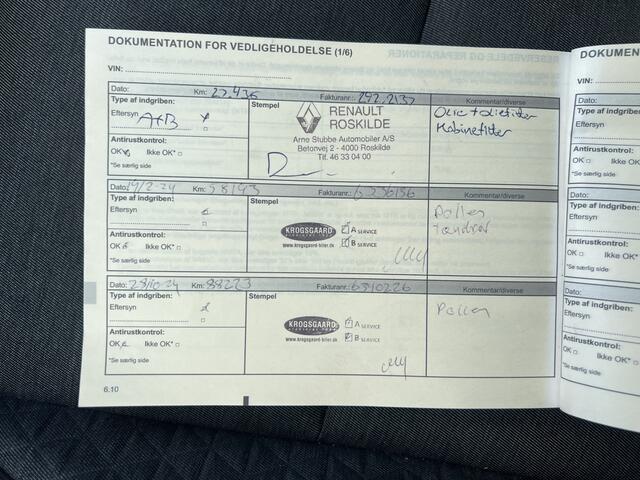 DOKUMENTATION FOR VEDLIGEHOLDELSE (1/6)
VIN:
Dato: Km: 27.436 Fakturanr.: 242.2137 Kommentar/diverse
Type af indgriben: Stempel
Eftersyn A+B
RENAULT
ROSKILDE
Arne Stubbe Automobiler A/S
Betonvej 2 - 4000 Roskilde
Tlf. 46 33 04 00
Olie + oliefilter
Kabinefilter
Antirustkontrol:
OK Ikke OK*
*Se særlig side
Dato: 19/2-24 Km: 58143 Fakturanr.: Kommentar/diverse
Type af indgriben: Stempel
Eftersyn
KROGSGAARD
www.krogsgaard-biler.dk
A SERVICE
B SERVICE
Pollen
tændrør
Antirustkontrol:
OK Ikke OK*
*Se særlig side
Dato: 28/10-24 Km: 88223 Fakturanr.: 6310226 Kommentar/diverse
Type af indgriben: Stempel
Eftersyn
KROGSGAARD
www.krogsgaard-biler.dk
A SERVICE
B SERVICE
Pollen
Antirustkontrol:
OK Ikke OK*
*Se særlig side
6.10
DOKUMEN
VIN:
Dato:
Type af indgriben:
Eftersyn
Antirustkontrol:
OK Ikke OK*
*Se særlig side
Dato:
Type af indgriben:
Eftersyn
Antirustkontrol:
OK Ikke OK*
*Se særlig side
Dato:
Type af indgriben:
Eftersyn
Antirustkontrol:
OK Ikke OK*
*Se særlig side